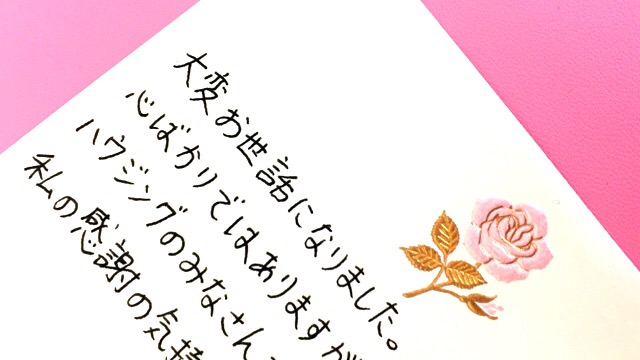 大変お世話になりました。
心ばかりではありますが
ハウジングのみなさん
私の感謝の気持